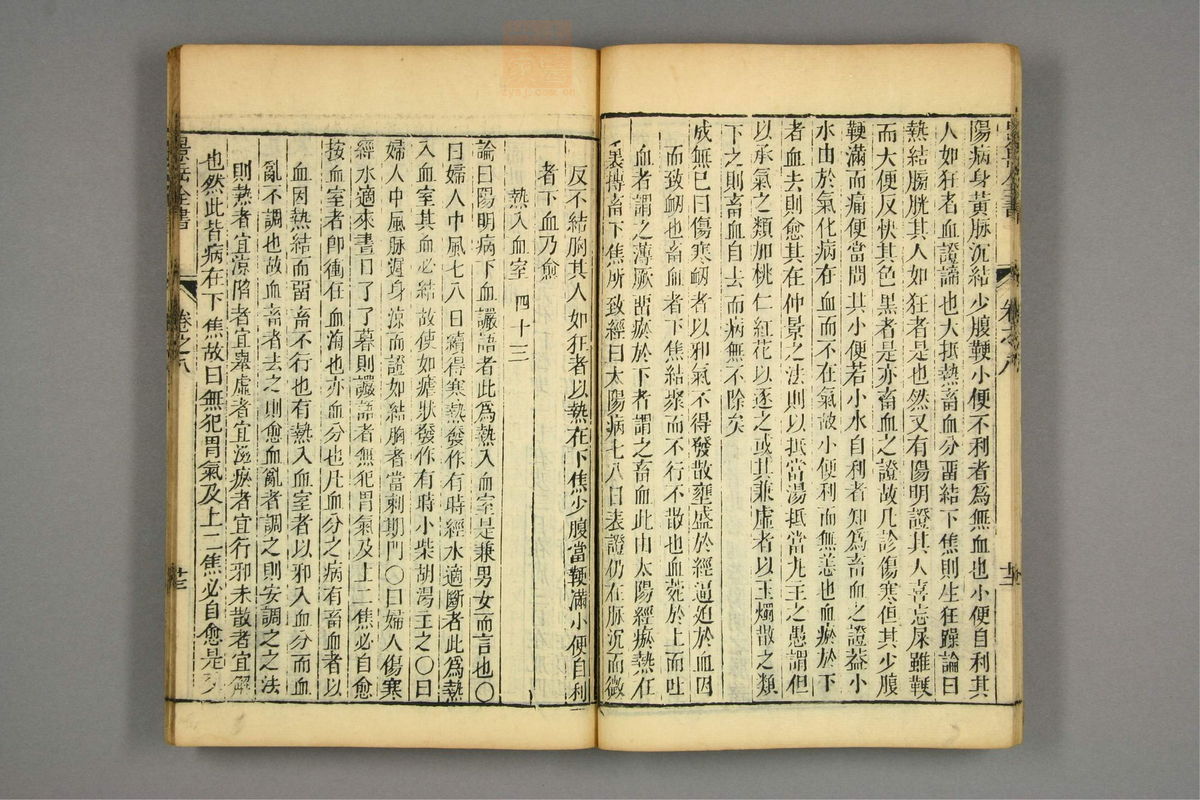 陽病身黃脉沉結少腹鞕小便不利者為無血也小便自利其
人如狂者血證諦也大抵熱畜血分畱結下焦則生狂躁論曰
熱結膀胱其人如狂者是也然又有陽明證其人喜忘屎雖鞕
而大便反快其色黑者是亦畜血之證故凡診傷寒但其少腹
鞕滿而痛便當問其小便若小水自利者知為畜血之證葢小
水由於氣化病在血而不在氣故小便利而無恙也血瘀於下
者血去則愈其在仲景之法則以抵當湯抵當丸主之愚謂但
以承氣之類加桃仁紅花以逐之或其兼虛者以玉燭散之類
下之則畜血自去而病無不除矣
成無已曰傷寒衂者以邪氣不得發散壅盛於經逼迫於血因
而致衂也畜血者下焦結聚而不行不散也血菀於上而吐
血者謂之薄厥畱瘀於下者謂之畜血此由太陽經瘀熱在
裏摶畜下焦所致經曰太陽病七八日表證仍在脉沉而微
反不結胸其人如狂者以熱在下焦少腹當鞕滿小便自利
者下血乃愈
熱入血室 四十三
論曰陽明病下血讝語者此為熱入血室是兼男女而言也〇
曰婦人中風七八日續得寒熱發作有時經水適斷者此為熱
入血室其血必結故使如瘧狀發作有時小柴胡湯主之〇曰
婦人中風脉遲身涼而證如結胸者當刺期門〇曰婦人傷寒
經水適來晝日了了暮則讝語者無犯胃氣及上二焦必自愈
按血室者卽衝任血海也亦血分也凡血分之病有畜血者以
血因熱結而畱畜不行也有熱入血室者以邪入血分而血
亂不調也故血畜者去之則愈血亂者調之則安調之之法
則熱者宜涼陷者宜舉虛者宜滋瘀者宜行邪未散者宜解
也然此皆病在下焦故曰無犯胃氣及上二焦必自愈是
景岳全書
卷之八